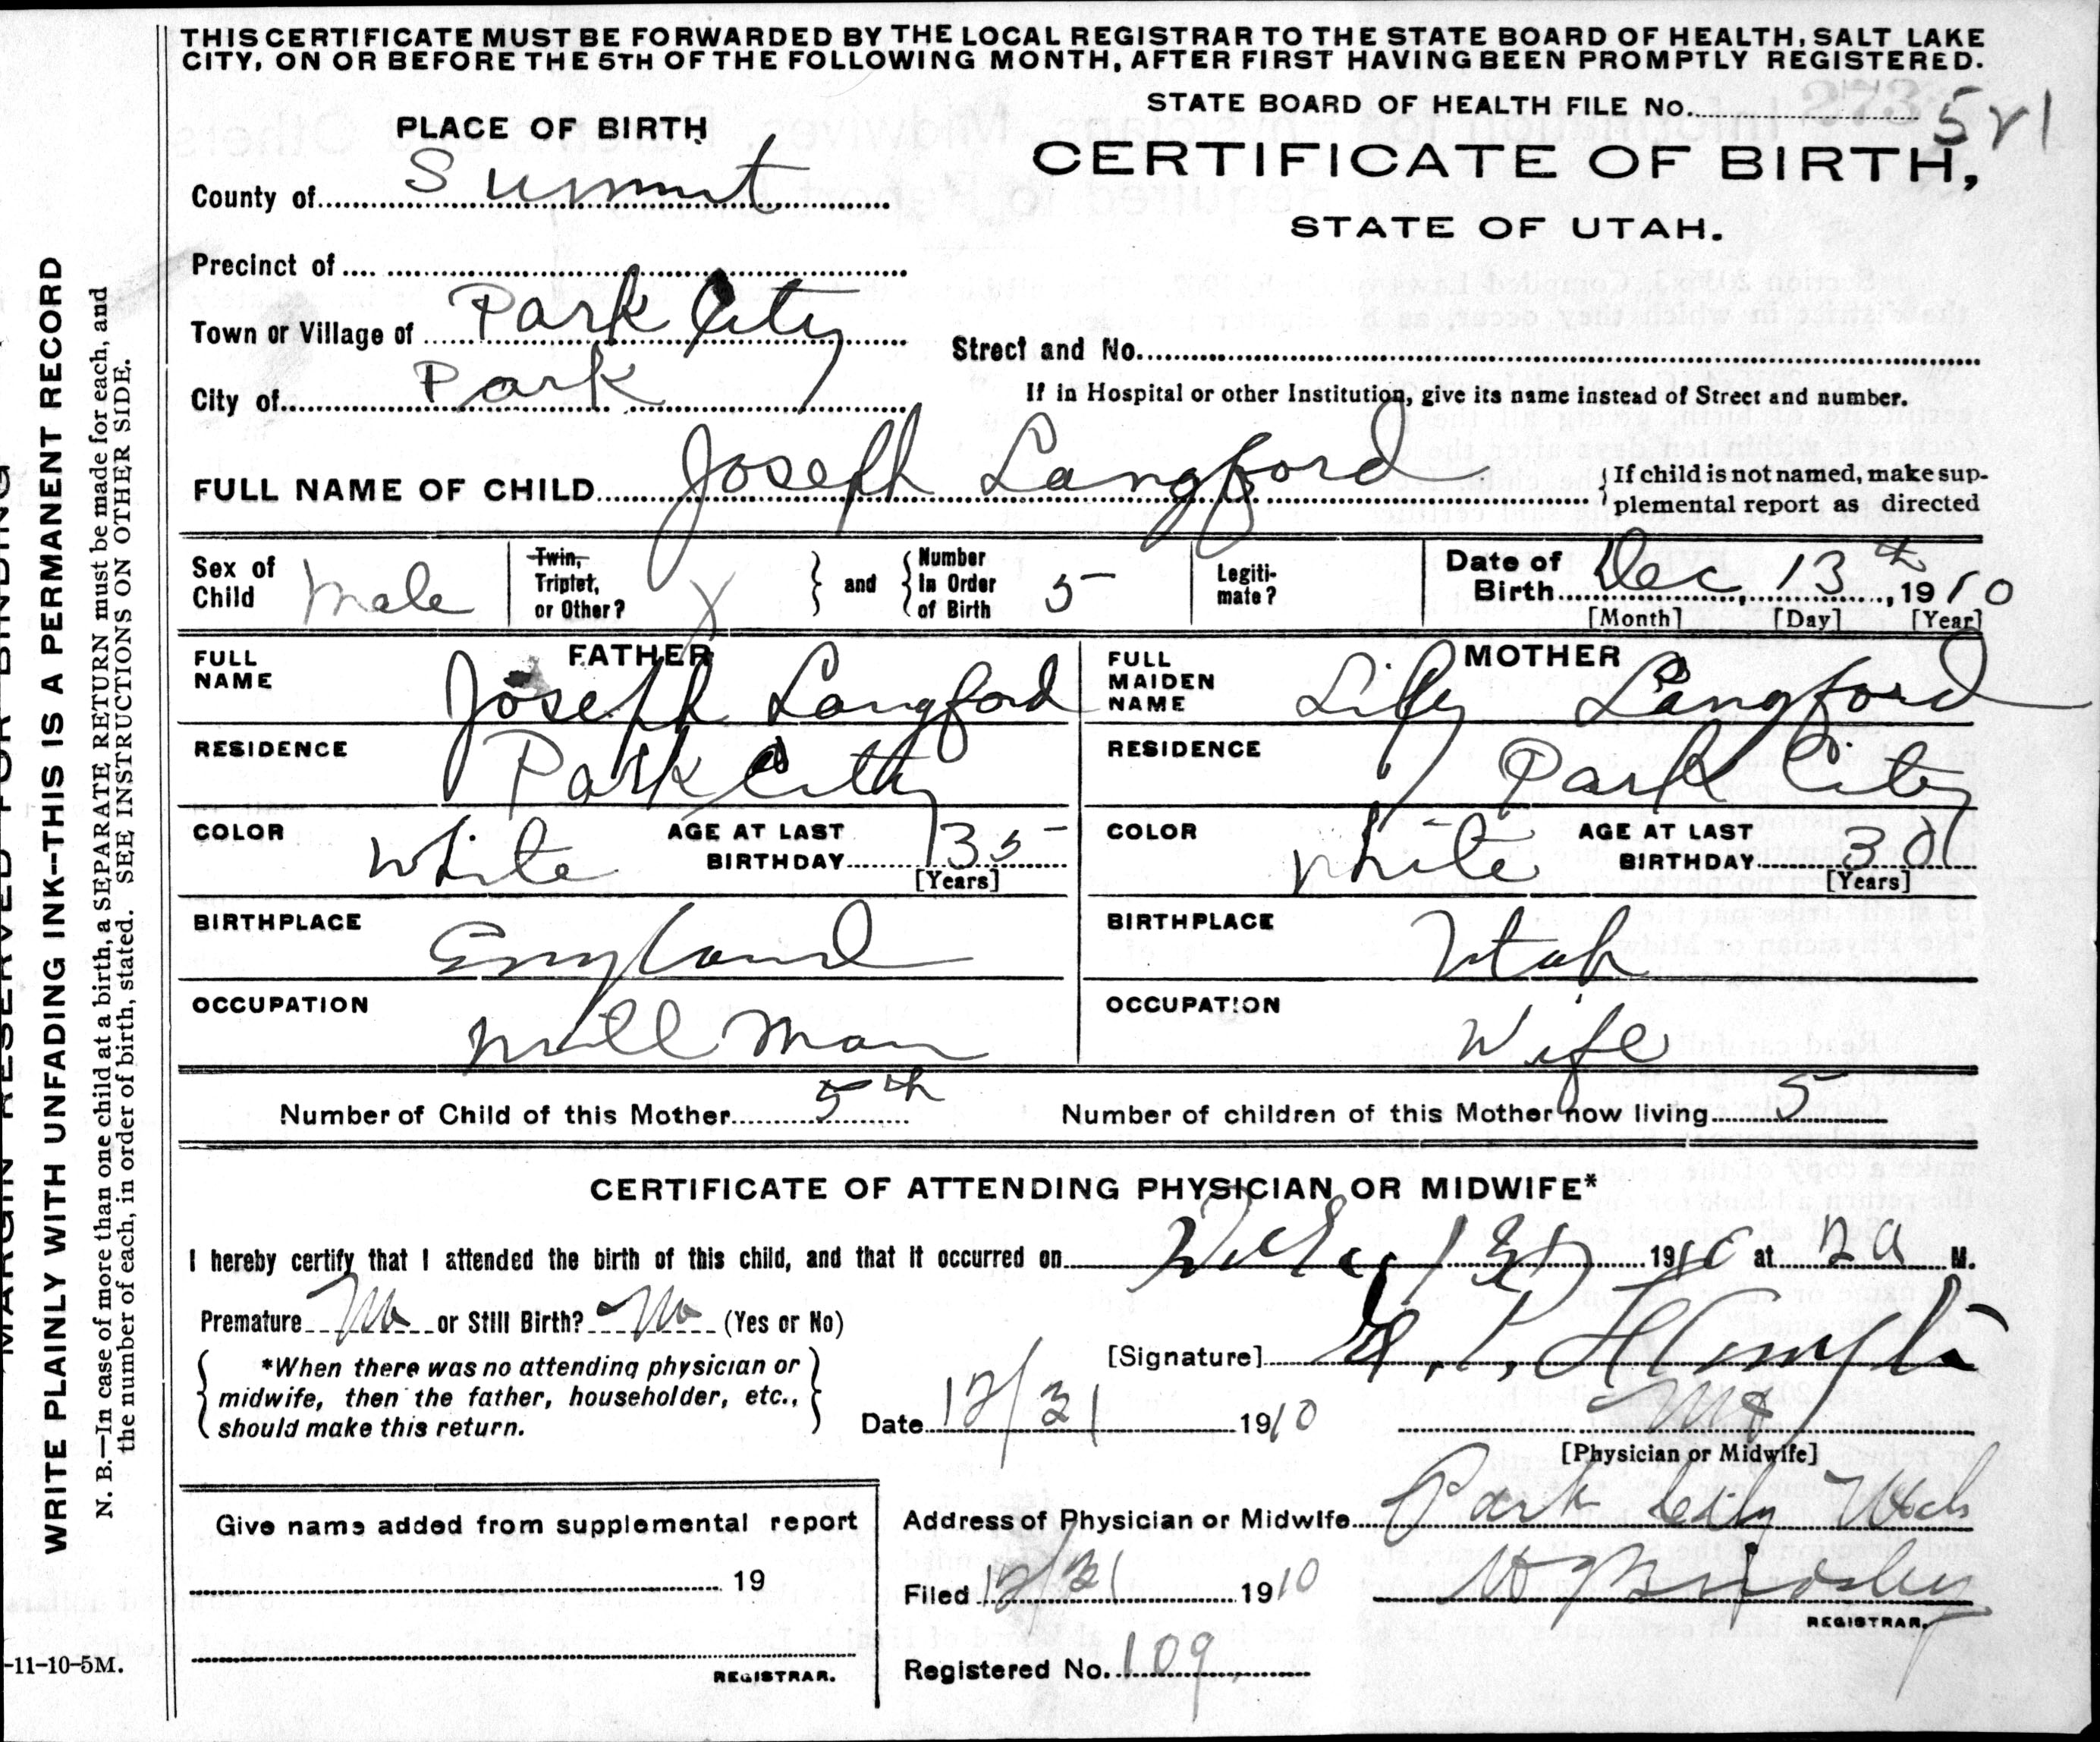 THIS CERTIFICATE MUST BE FORWARDED BY THE LOCAL REGISTRAR TO THE STATE BOARD OF HEALTH, SALT LAKE
CITY, ON OR BEFORE THE 5TH OF THE FOLLOWING MONTH, AFTER FIRST HAVING BEEN PROMPTLY REGISTERED.
STATE BOARD OF HEALTH FILE No. 273
PLACE OF BIRTH
CERTIFICATE OF BIRTH,
County of Summit
STATE OF UTAH.
Precinct of
Town or Village of Park City
Street and No.
City of Park
If in Hospital or other Institution, give its name instead of Street and number.
FULL NAME OF CHILD Joseph Langford
If child is not named, make sup-
plemental report as directed
Sex of Child Male
Twin, Triplet, or Other? X and Number In Order of Birth 5
Legiti-mate?
Date of Birth Dec, 13th, 1910
[Month] [Day] [Year]
FATHER
FULL NAME Joseph Langford
RESIDENCE Park City
COLOR White AGE AT LAST BIRTHDAY 35
[Years]
BIRTHPLACE England
OCCUPATION Mill Man
MOTHER
FULL MAIDEN NAME Lily Langford
RESIDENCE Park City
COLOR White AGE AT LAST BIRTHDAY 30
[Years]
BIRTHPLACE Utah
OCCUPATION Wife
Number of Child of this Mother 5th Number of children of this Mother now living 5
CERTIFICATE OF ATTENDING PHYSICIAN OR MIDWIFE*
I hereby certify that I attended the birth of this child, and that it occurred on 1910 at 2 a M.
Premature No or Still Birth? No (Yes or No)
*When there was no attending physician or
midwife, then the father, householder, etc.,
should make this return.
[Signature]
Date 12/31 1910
[Physician or Midwife]
Give name added from supplemental report
19
REGISTRAR.
Address of Physician or Midwife Park City Utah
Filed 12/31 1910
REGISTRAR.
Registered No. 109
MARGIN RESERVED FOR BINDING
WRITE PLAINLY WITH UNFADING INK--THIS IS A PERMANENT RECORD
N. B.—In case of more than one child at a birth, a SEPARATE RETURN must be made for each, and
the number of each, in order of birth, stated. SEE INSTRUCTIONS ON OTHER SIDE.
-11-10-5M.